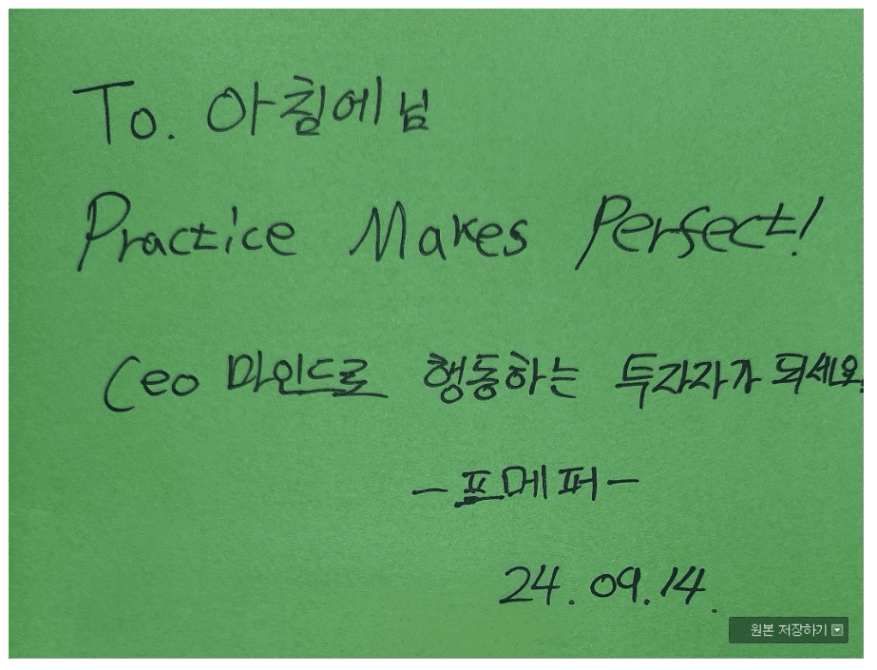 To. 아침에님
Practice Makes Perfect!
Ceo 마인드로 행동하는 투자자가 되세요.
-프메퍼-
24.09.14.
원본 저장하기